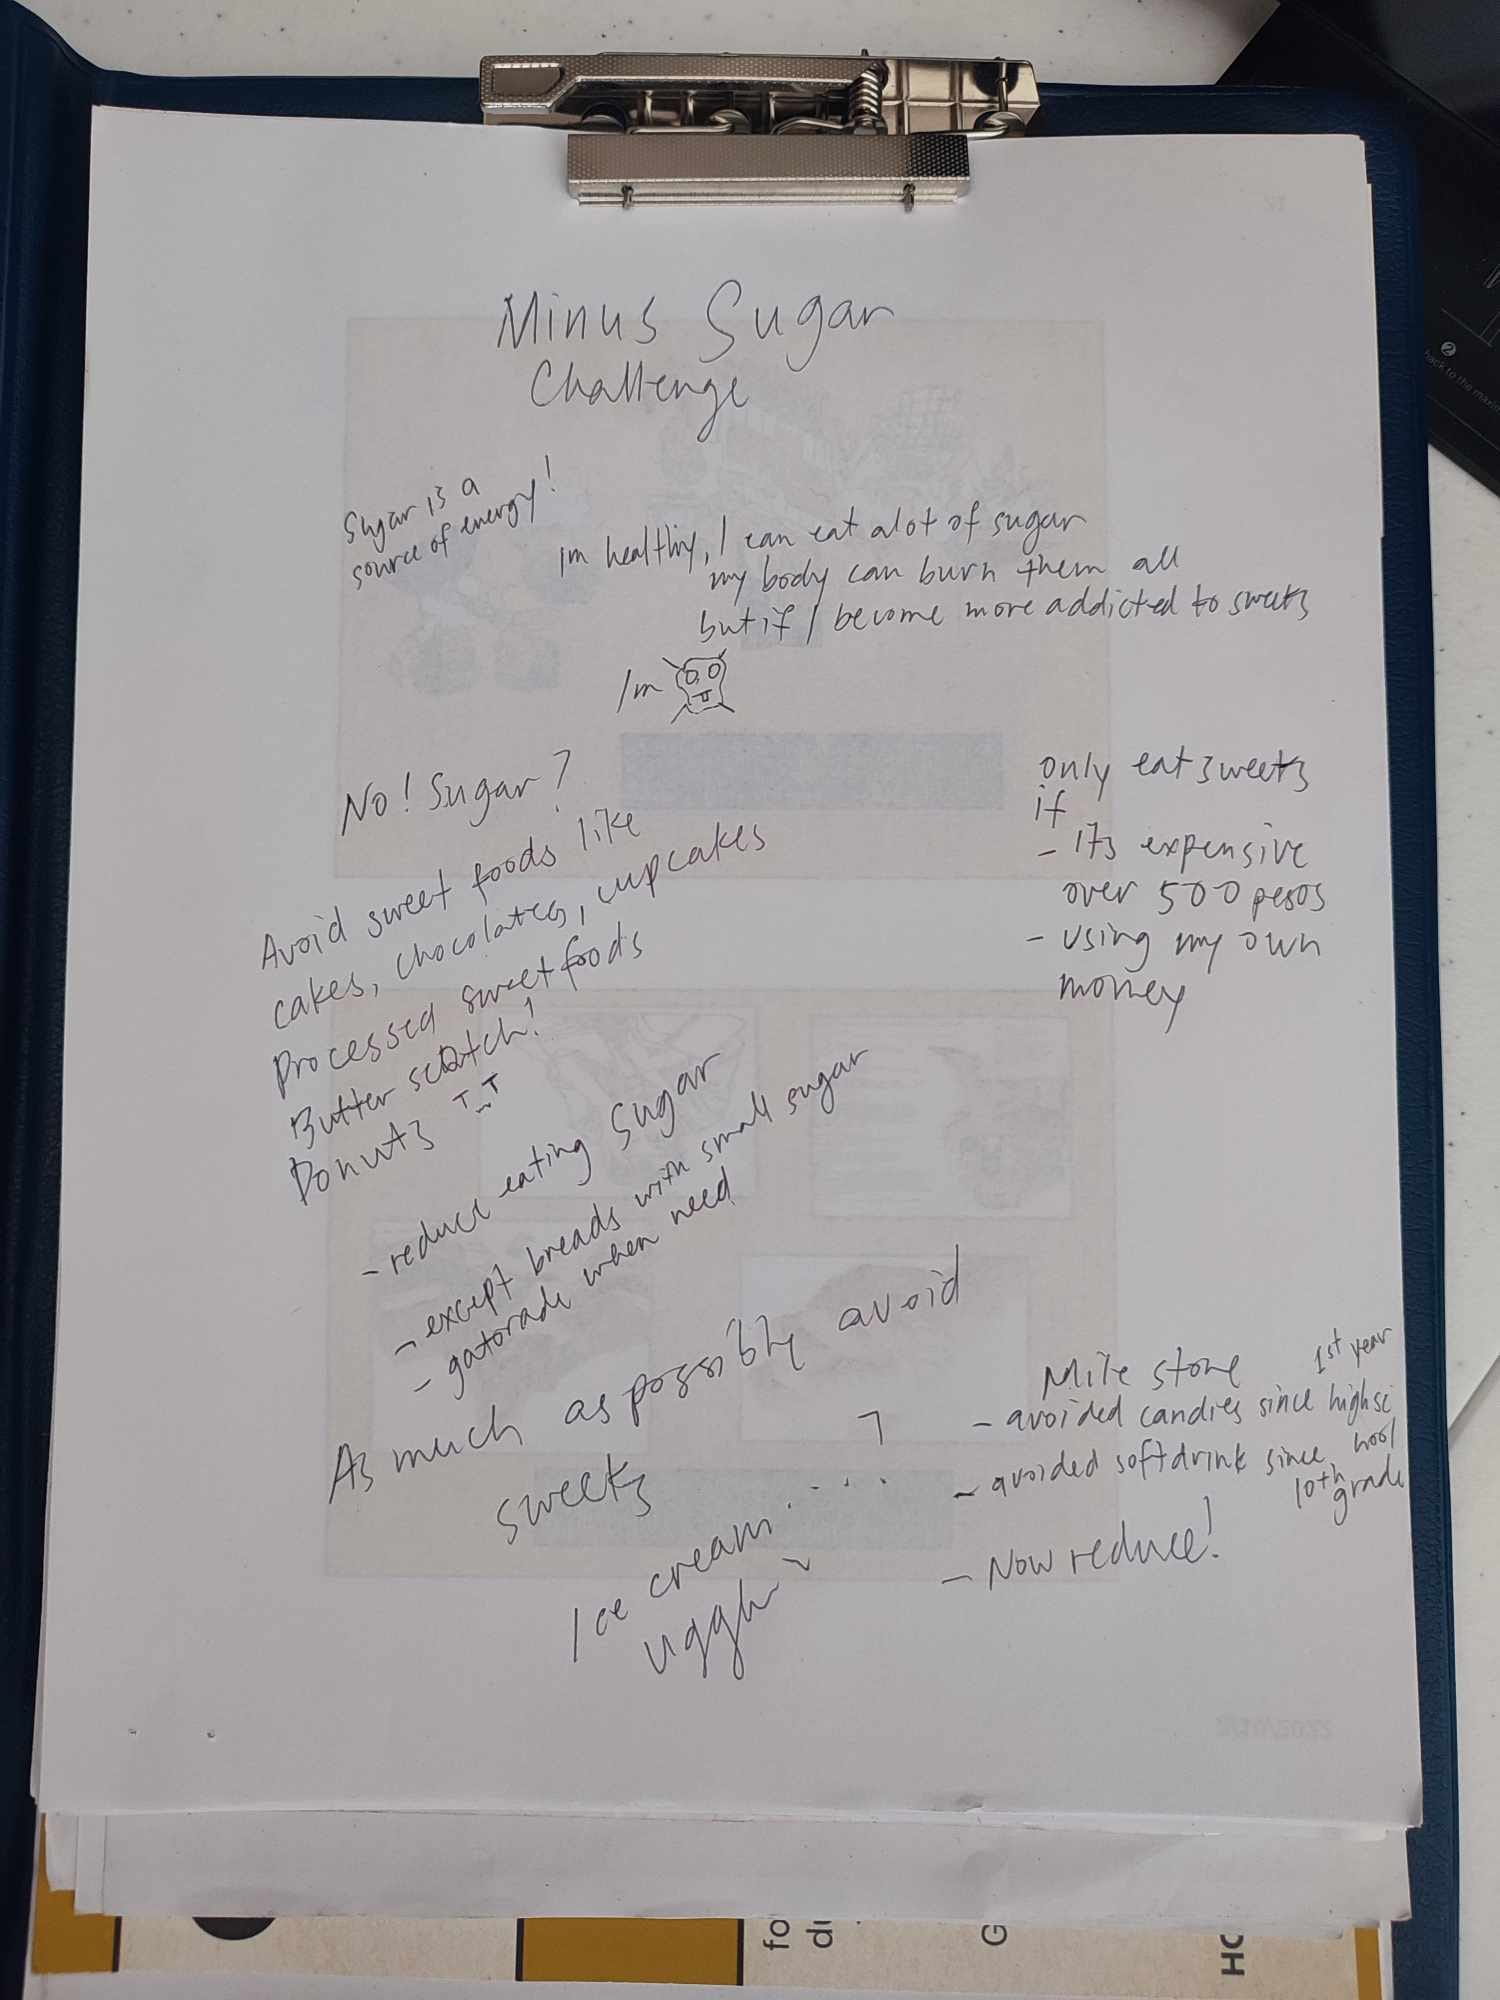 Minus Sugar
Challenge
Sugar is a
source of energy!
Im healthy, I can eat alot of sugar
my body can burn them all
but if I become more addicted to sweets
Im
No! Sugar?
Avoid sweet foods like
cakes, chocolates, cupcakes
Processed sweet foods
Butter scotch!
Donuts T_T
- reduce eating sugar
- except breads with small sugar
- gatorade when need
As much as possibly avoid
sweets
Ice cream....
ugghh
only eat sweets
if
- its expensive
over 500 pesos
- using my own
money
Mile stone
- avoided candies since 1st year highschool
- avoided softdrink since 10th grade
- Now reduce!
2
back to the
fo
du
G
HO